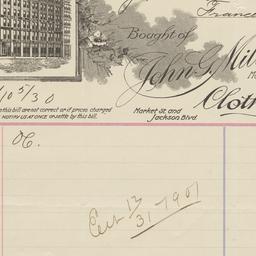 Franc
Bought of
John G. Mil
Cloth
105/30
this bill are not correct or if prices charged
NOTIFY US AT ONCE or settle by this bill.
Market St. and
Jackson Blvd
12/31-1901